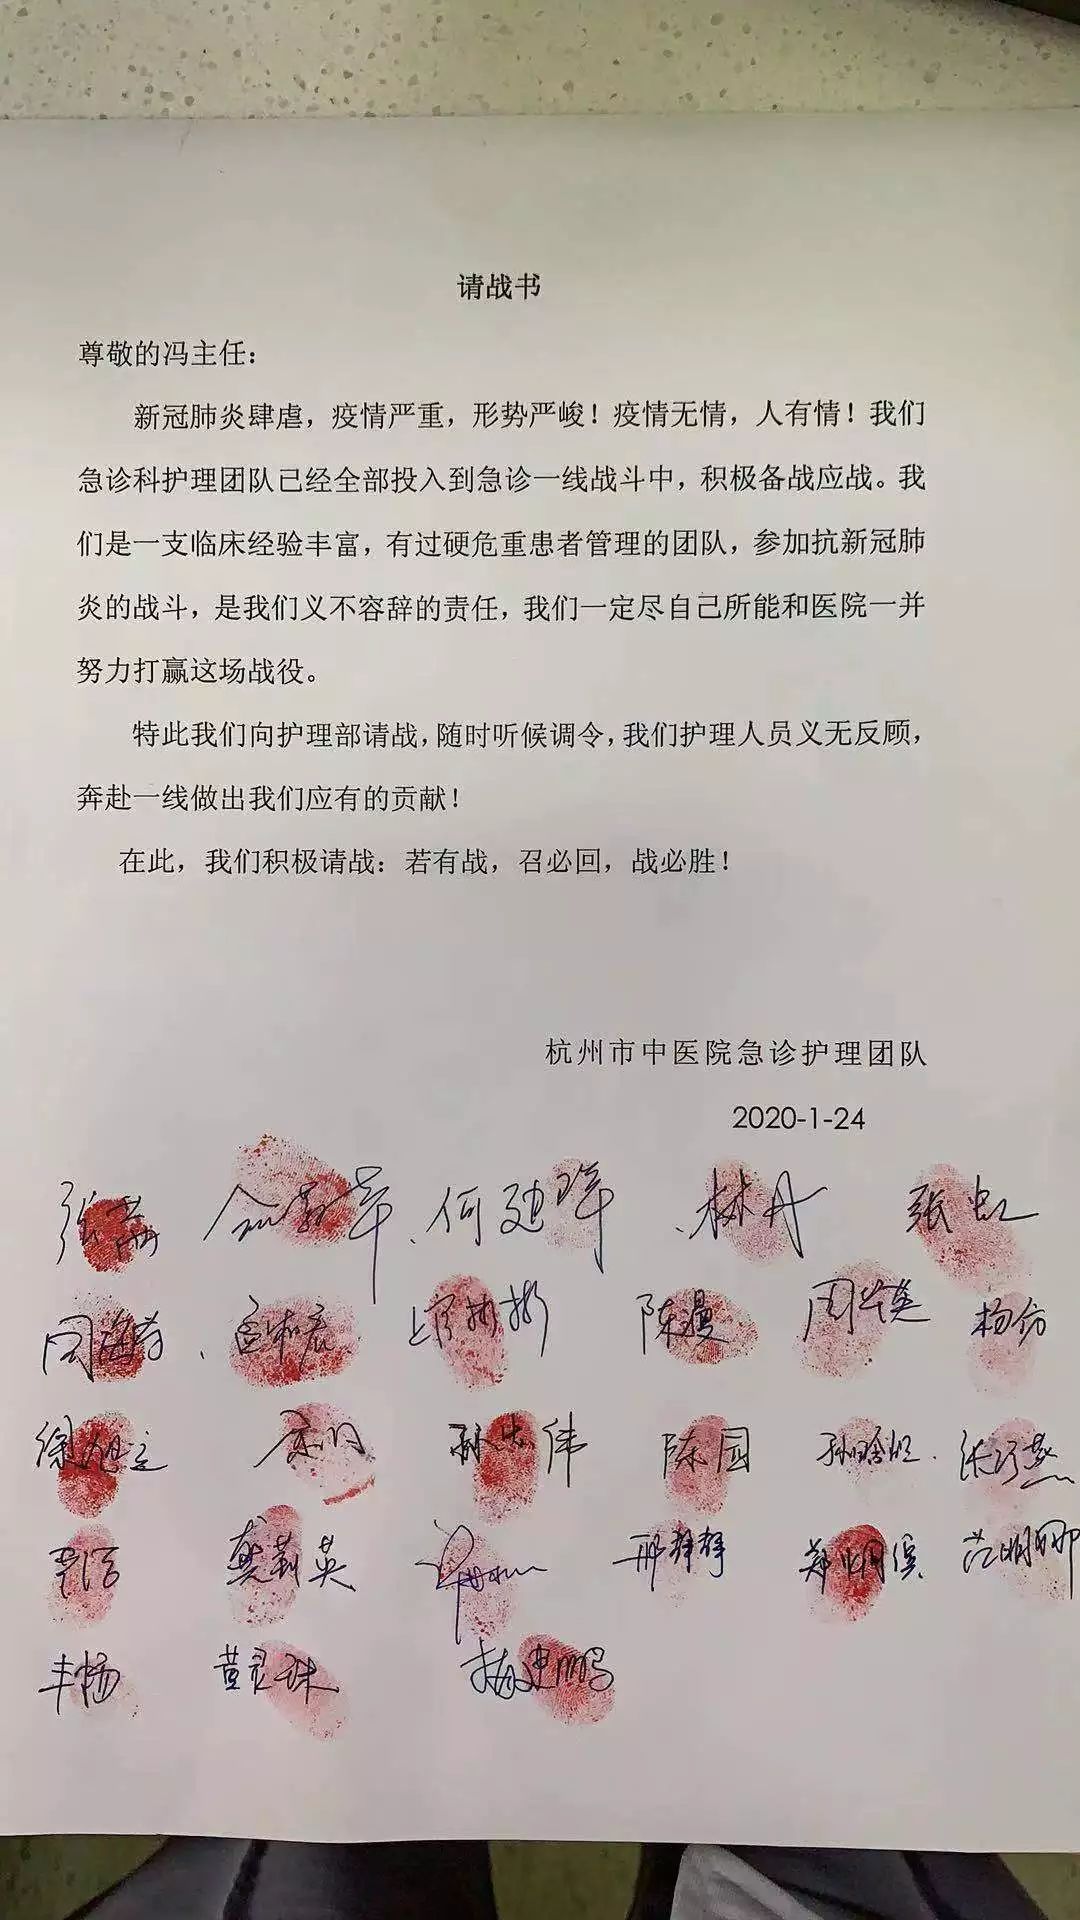 请战书
尊敬的冯主任：
新冠肺炎肆虐，疫情严重，形势严峻！疫情无情，人有情！我们
急诊科护理团队已经全部投入到急诊一线战斗中，积极备战应战。我
们是一支临床经验丰富，有过硬危重患者管理的团队，参加抗新冠肺
炎的战斗，是我们义不容辞的责任，我们一定尽自己所能和医院一并
努力打赢这场战役。
特此我们向护理部请战，随时听候调令，我们护理人员义无反顾，
奔赴一线做出我们应有的贡献！
在此，我们积极请战：若有战，召必回，战必胜！
杭州市中医院急诊护理团队
2020-1-24
何迪 林丹 张虹
陈漫 杨仿
徐旭立 陈园
龚莉英 邢静静 范明娜
丰杨 黄灵珠